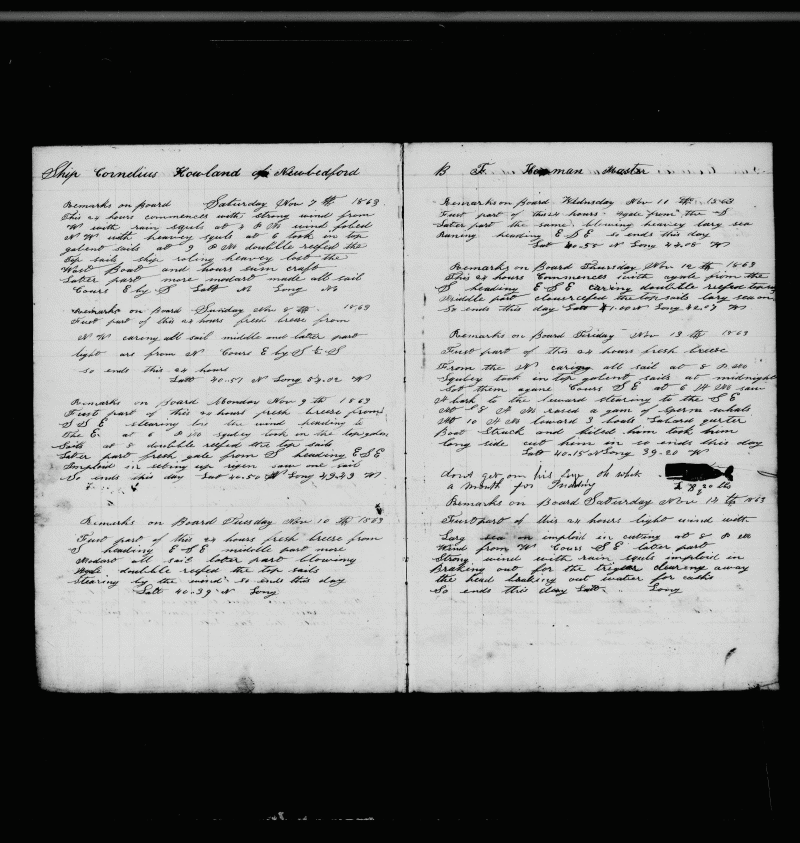 Ship Cornelius Howland of Newbedford
Remarks on Board Saturday Nov 7 th 1863
This 24 hours commences with strong wind from
W with rain squls at 4 P M wind folied
N W with heavey squls at 6 took in top
galent sails at 9 P M doubble reefed the
Top sails ship roling heavey lost the
Wast Boat and hours sum craft
Later part more modart made all sail
Cours E by S Latt No Long No
Remarks on Board Sunday Nov 8 th 1863
First part of this 24 hours fresh breese from
N W careing all sail middle and later part
light are from N Cours E by S & S
so ends this 24 hours
Latt 40.57 N Long 52.02 W
Remarks on Board Monday Nov 9 th 1863
First part of this 24 hours fresh breese from
S S E stearing by the wind heading to
The E. at 6 P M squley took in the top galen
Sails at 8 doubble reefed the top sails
Later part fresh gale from S heading E S E
Imploid in seting up rigen saw one sail
So ends this day Latt 40.50 N Long 49.43 W
Remarks on Board Tuesday Nov 10 th 1863
First part of this 24 hours fresh breese from
S heading E S E middle part more
Modart all sail later part blowing
doubble reefed the top sails
Stearing by the wind so ends this day
Latt 40.39 N Long
B F Homan Master
Remarks on Board Wednsday Nov 11 th 1863
First part of this 24 hours from the S
Later part the same bloweing heavey larg sea
Runing heading E S E so ends this day
Latt 40.58 N Long 44.08 W
Remarks on Board Thursday Nov 12 th 1863
This 24 hours Commences with a gale from the
S heading E S E caring doubble reefed top
Middle part closereefed the top sails larg sea on
So ends this day Latt 41.00 N Long 42.07 W
Remarks on Board Friday Nov 13 th 1863
First part of this 24 hours fresh breese
From the N careing all sail at 8 P M
Squley took in top galent sails at midnight
Set them agane Cours S E at 6 A M saw
A bark to the leward stearing to the S E
At 8 A M rased a gam of Sperm whals
At 10 A M lowerd 3 boats Labord qurter
Boat Struck and killed him took him
long side cut him in so ends this day
Latt 40.15 N Long 39.20 W
dont get on his
a month for
20 lbs
Remarks on Board Saturday Nov 14 th 1863
First part of this 24 hours light wind with
Larg sea on imploid in cuting at 8 P M
Wind from W Cours S E later part
Strong wind with rain squls imploid in
Braking out for the clearing away
the head braking out water for casks
So ends this day Latt Long